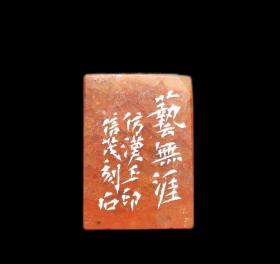 藝無涯
仿漢玉印
信茂刻石